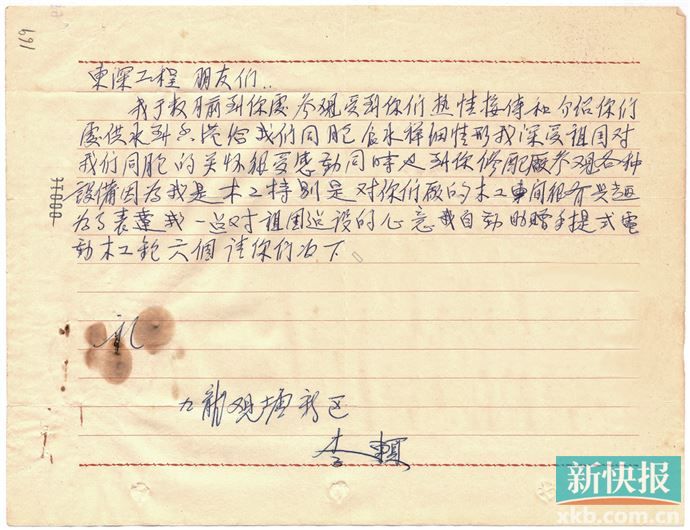 169
東深工程 朋友们：
我于数月前到你處参观受到你们热情接待和介绍你们
處供水到香港给我们同胞食水祥细情形我深受祖国对
我们同胞的关怀很受感動同時也到你修配廠参观各种
設備因为我是木工特别是对你们廠的木工車间很有兴趣
为了表達我一点对祖国建设的心意我自动的赠手提式電
動木工鉋六個请你们收下
礼
九龍观塘新区
李
新快报
xkb.com.cn